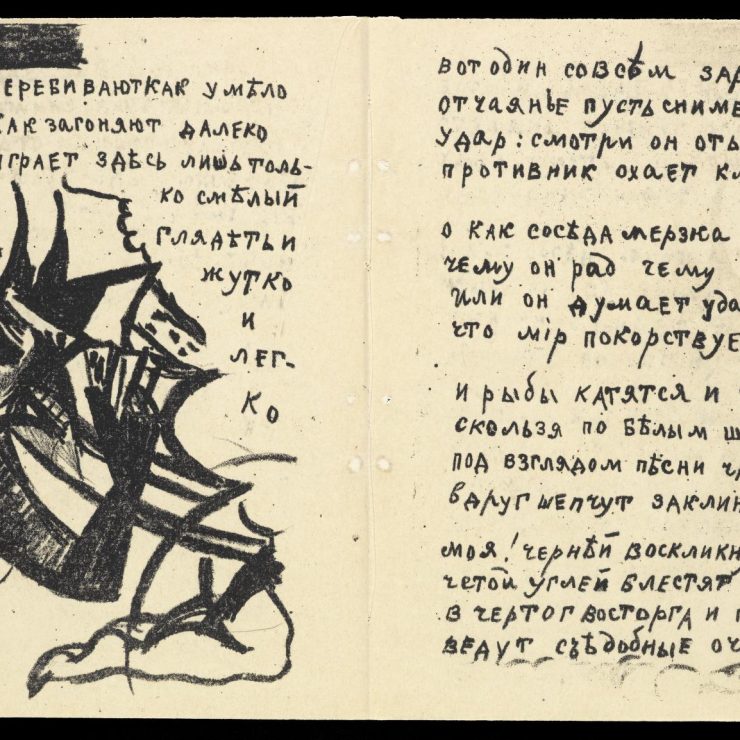 еребиваюткак умѣло
как загоняют далеко
играет здѣсь лишь толь-
ко смѣлый
глядѣть и
жутко
и
лег-
ко
вот один совсѣм зар
отчаянье пусть сниме
удар: смотри он оть
противник охает кл
о как сосѣда мерзка
чему он рад чему
или он думает уда
что мір покорствуе
и рыбы катятся и
скользя по бѣлым ш
под взглядом пѣсни ч
вдруг шепчут заклин
моя! чернѣй воскликн
четой углей блестят
в чертог восторга и п
ведут съѣдобные оч